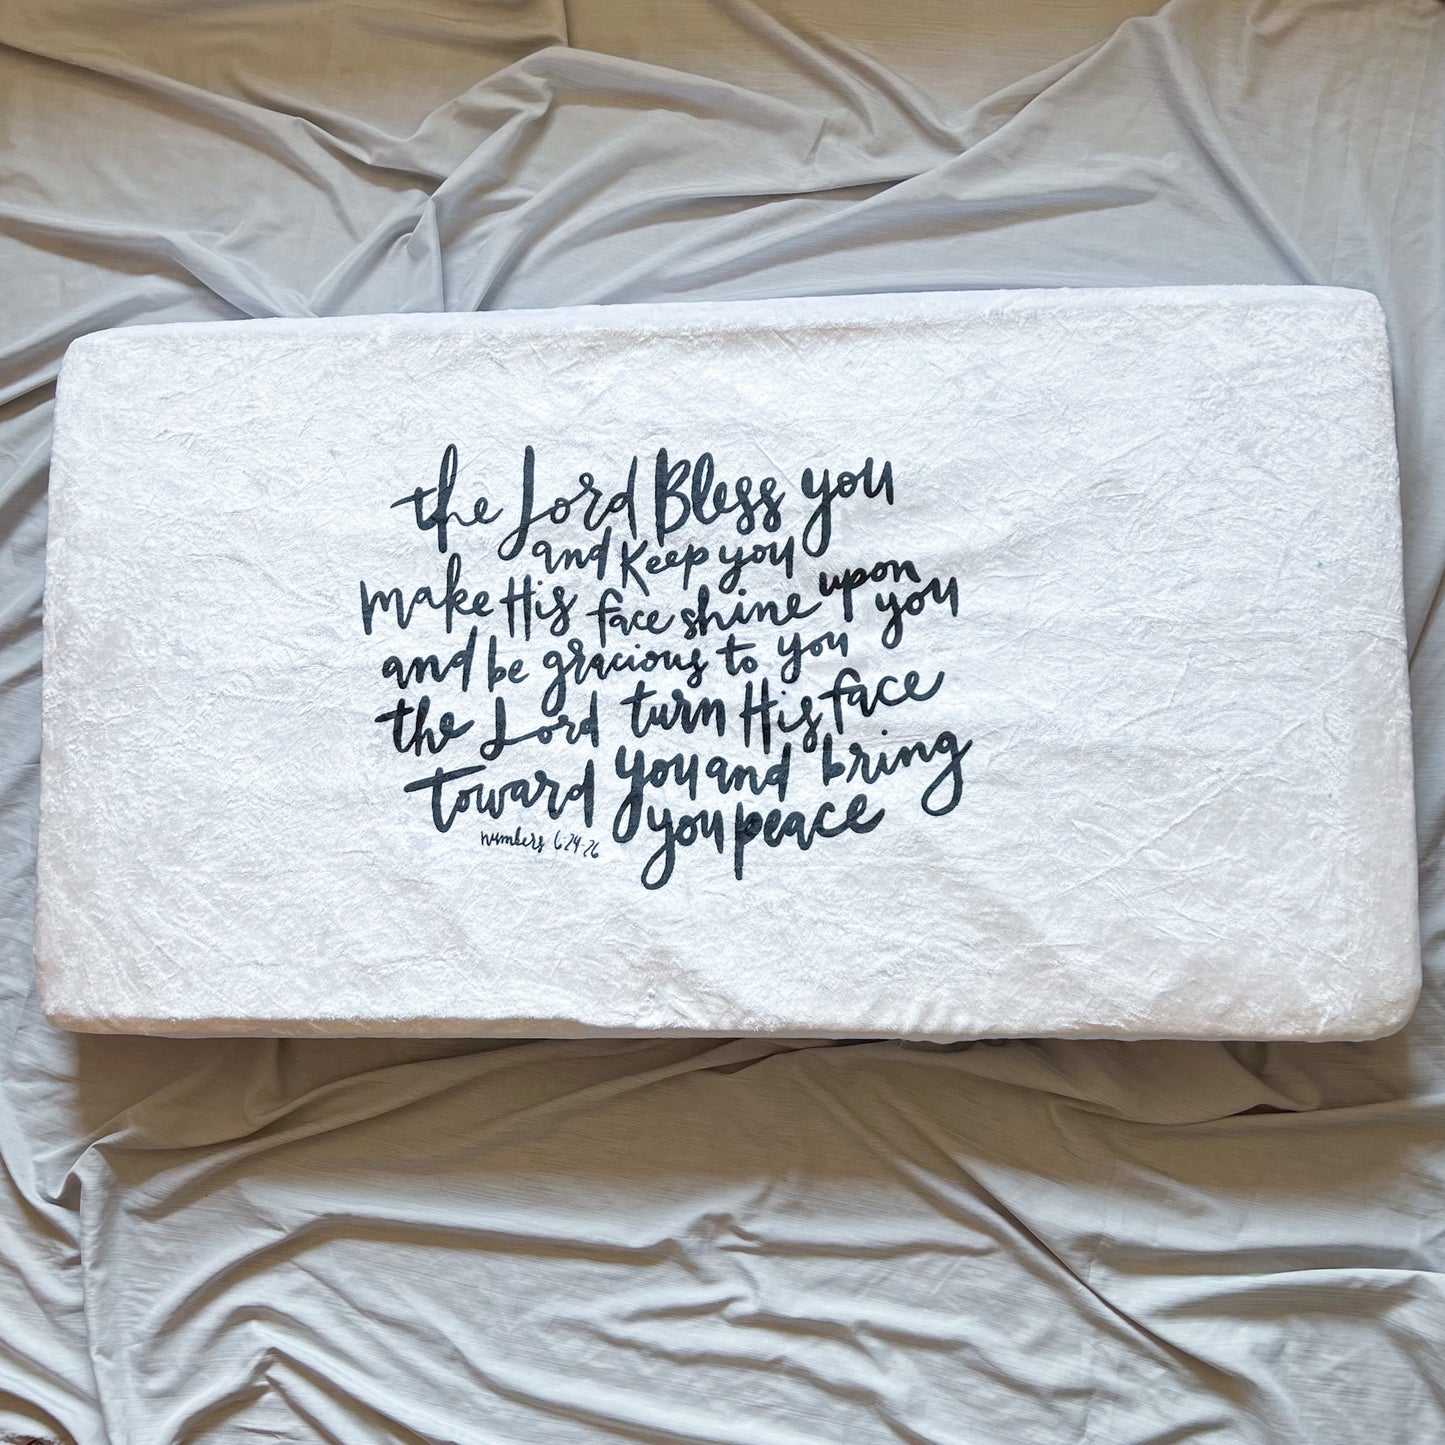 the Lord Bless you
and Keep you
make His face shine upon you
and be gracious to you
the Lord turn His face
toward you and bring
you peace
numbers 6:24-26